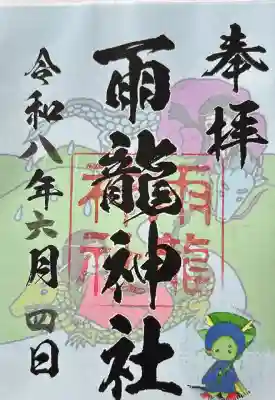 奉拝
雨龍神社
雨龍神社
令和八年六月四日